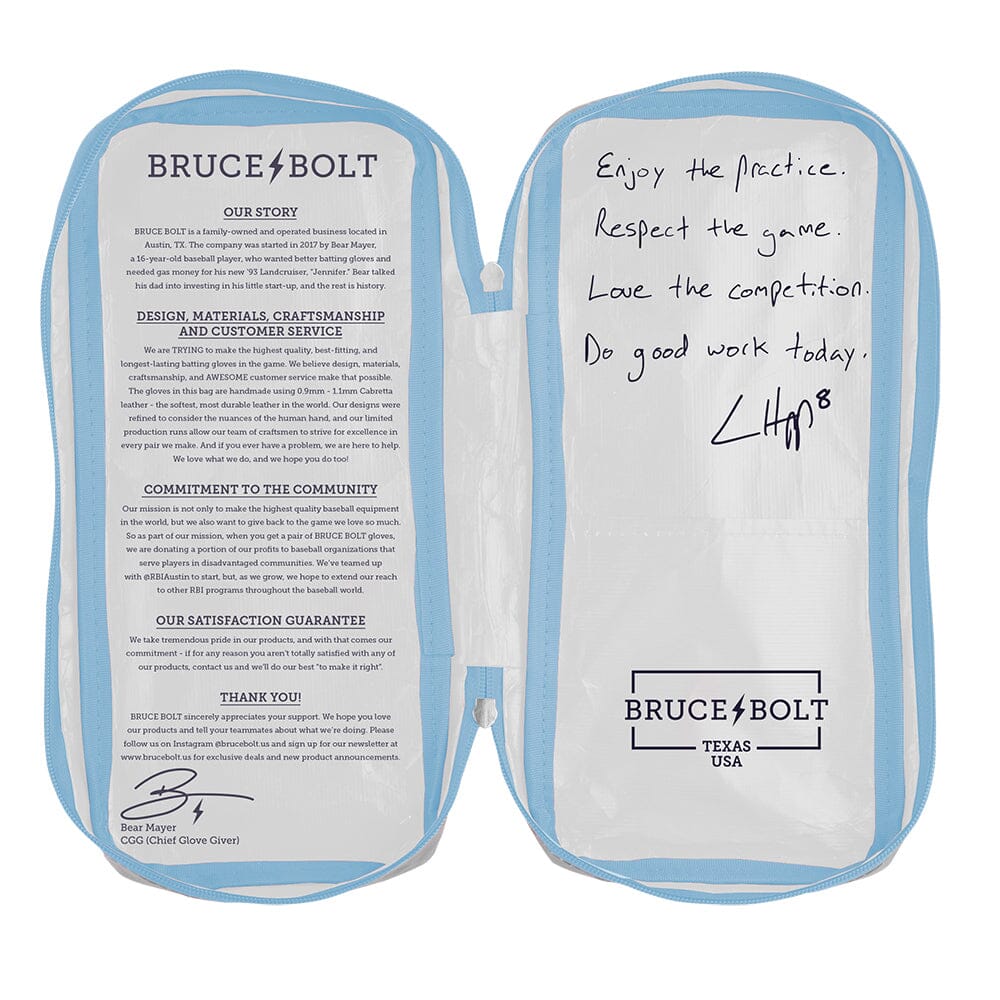 BRUCE BOLT
OUR STORY
BRUCE BOLT is a family-owned and operated business located in
Austin, TX. The company was started in 2017 by Bear Mayer,
a 16-year-old baseball player, who wanted better batting gloves and
needed gas money for his new '93 Landcruiser, "Jennifer." Bear talked
his dad into investing in his little start-up, and the rest is history.
DESIGN, MATERIALS, CRAFTSMANSHIP
AND CUSTOMER SERVICE
We are TRYING to make the highest quality, best-fitting, and
longest-lasting batting gloves in the game. We believe design, materials,
craftsmanship, and AWESOME customer service make that possible.
The gloves in this bag are handmade using 0.9mm - 1.1mm Cabretta
leather - the softest, most durable leather in the world. Our designs were
refined to consider the nuances of the human hand, and our limited
production runs allow our team of craftsmen to strive for excellence in
every pair we make. And if you ever have a problem, we are here to help.
We love what we do, and we hope you do too!
COMMITMENT TO THE COMMUNITY
Our mission is not only to make the highest quality baseball equipment
in the world, but we also want to give back to the game we love so much.
So as part of our mission, when you get a pair of BRUCE BOLT gloves,
we are donating a portion of our profits to baseball organizations that
serve players in disadvantaged communities. We've teamed up
with @RBIAustin to start, but, as we grow, we hope to extend our reach
to other RBI programs throughout the baseball world.
OUR SATISFACTION GUARANTEE
We take tremendous pride in our products, and with that comes our
commitment - if for any reason you aren't totally satisfied with any of
our products, contact us and we'll do our best "to make it right".
THANK YOU!
BRUCE BOLT sincerely appreciates your support. We hope you love
our products and tell your teammates about what we're doing. Please
follow us on Instagram @brucebolt.us and sign up for our newsletter at
www.brucebolt.us for exclusive deals and new product announcements.
Bear Mayer
CGG (Chief Glove Giver)
Enjoy the practice.
Respect the game.
Love the competition.
Do good work today.
8
BRUCE BOLT
TEXAS
USA